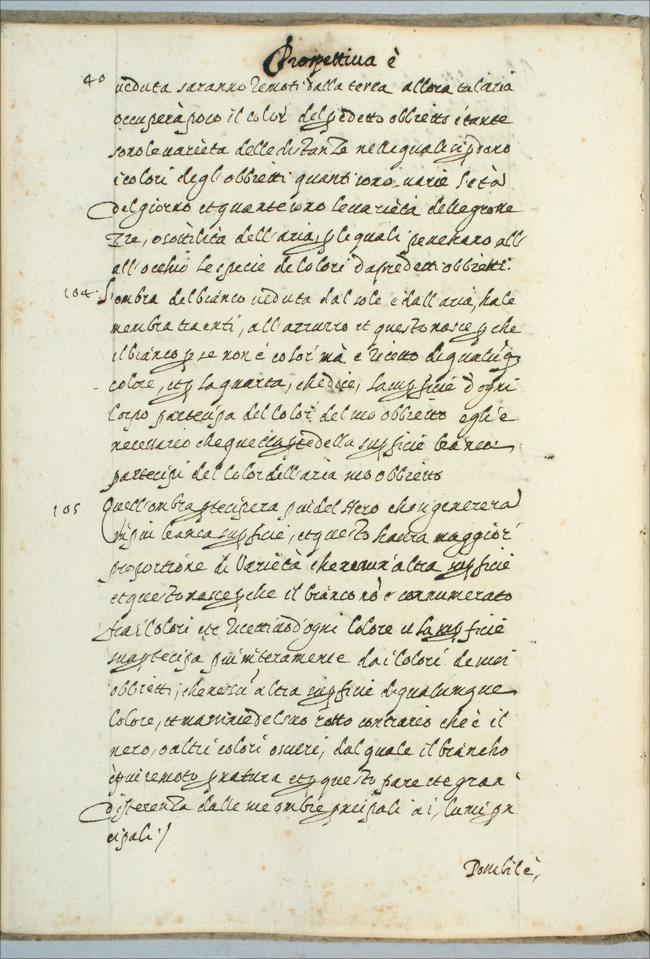 Prospettiua è
40 ueduta saranno remoti dalla terra allora tal aria
occuperà poco il color del pdetto obbietto et tante
sono le uarieta delle distanze nelle quali si pdono
i colori degli obbietti quanti sono uarie l'età
del giorno et quante sono le uarietà delle grosse
zze, o sottilità dell'aria, p le quali penetrano all
all occhio le specie de colori da predetti obbietti.
104 L'ombra del bianco ueduta dal sole e dall'aria, ha le
membra traenti, all'azzurro et questo nasce p che
il bianco p se non è color mà è ricetto di qualuq
colore, et p la quarta, che dice, la supficie d'ogni
corpo partecipa del color del suo obbietto egli è
necessario che quella pte della supficie bianca
partecipi del color dell'aria suo obbietto
105 Quell'ombra ptecipera piu del Nero che si genererà
in piu bianca supficie, et questo haura maggior
proportione di Varietà che nessun'altra supficie
et questo nasce p che il bianco nō è connumerato
fra i Colori et è ricettiuo d'ogni Colore et la supficie
sua ptecipa piu interamente da i Colori de suoi
obbietti, che nessū altra supficie di qualunque
Colore, et massime del suo retto contrario che è il
nero, o altri colori oscuri, dal quale il biancho
è piu remoto p natura et p questo pare et è gran
differenza dalle sue ombre pncipali a i, lumi pn
cipali /
Possibil è,